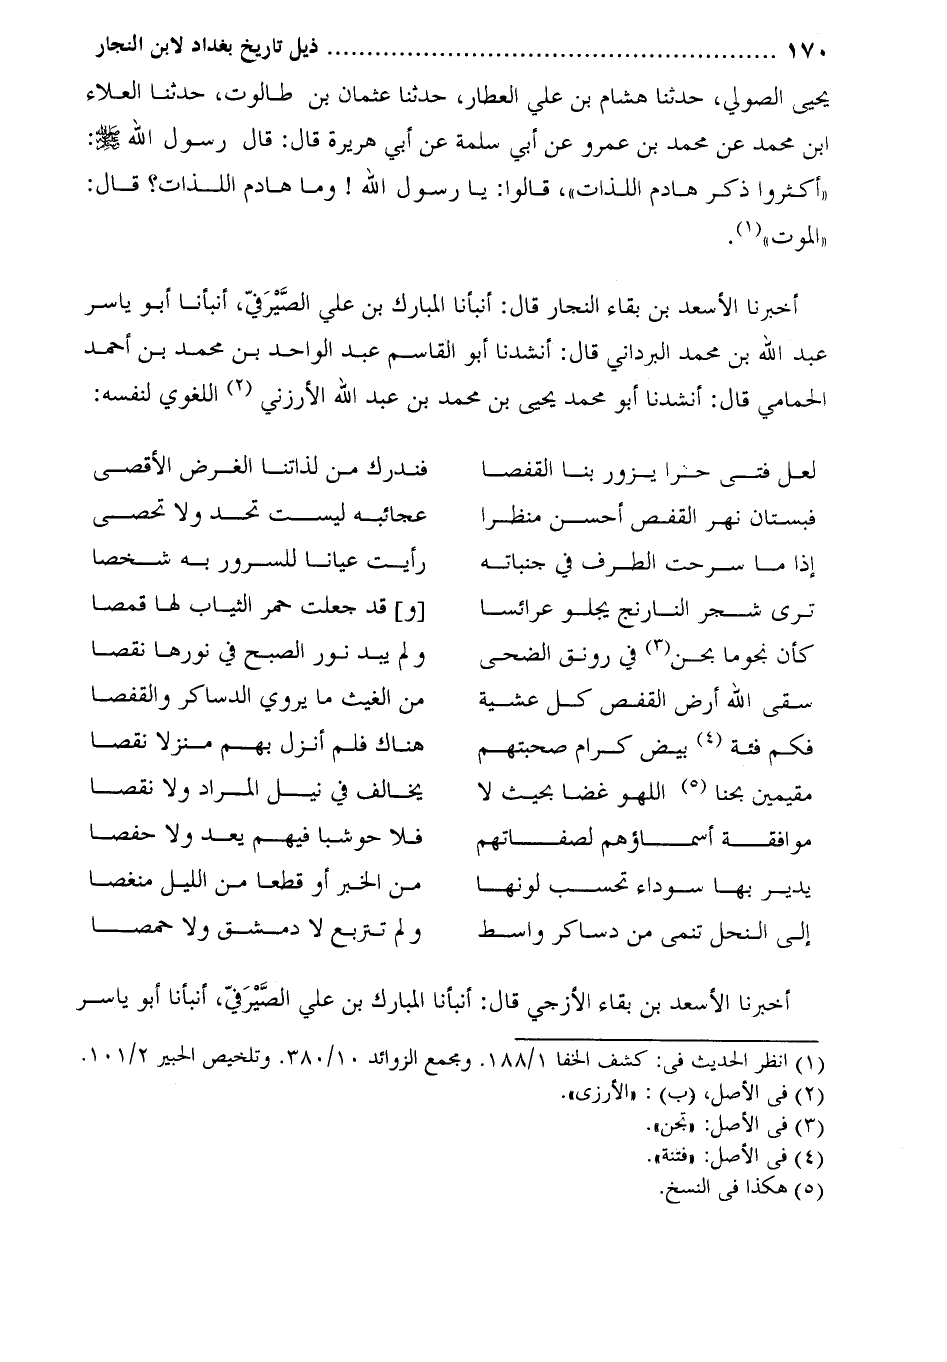 ١٧٠ ............................................................ ذيل تاريخ بغداد لابن النجار
يحيى الصولي، حدثنا هشام بن علي العطار، حدثنا عثمان بن طالوت، حدثنا العلاء
ابن محمد عن محمد بن عمرو عن أبي سلمة عن أبي هريرة قال: قال رسول الله ﷺ:
«أكثروا ذكر هادم اللذات»، قالوا: يا رسول الله ! وما هادم اللذات؟ قال:
«الموت»(١).
أخبرنا الأسعد بن بقاء النجار قال: أنبأنا المبارك بن علي الصَّيْرَفيّ، أنبأنا أبو ياسر
عبد الله بن محمد البرداني قال: أنشدنا أبو القاسم عبد الواحد بن محمد بن أحمد
الحمامي قال: أنشدنا أبو محمد يحيى بن محمد بن عبد الله الأرزني (٢) اللغوي لنفسه:
لعل فتى حنرا يزور بنا القفصا فندرك من لذاتنا الغرض الأقصى
فبستان نهر القفص أحسن منظرا عجائبه ليست تحد ولا تحصى
إذا ما سرحت الطرف في جنباته رأيت عيانا للسرور به شخصا
ترى شجر النارنج يجلو عرائسا [و] قد جعلت حمر الثياب لها قمصا
كأن نجوما بحن(٣) في رونق الضحى ولم يبد نور الصبح في نورها نقصا
سقى الله أرض القفص كل عشية من الغيث ما يروي الدساكر والقفصا
فكم فئة (٤) بيض كرام صحبتهم هناك فلم أنزل بهم منزلا نقصا
مقيمين بحنا (٥) اللهو غضا بحيث لا يخالف في نيل المراد ولا نقصا
موافقة أسماؤهم لصفاتهم فلا حوشبا فيهم يعد ولا حفصا
يدير بها سوداء تحسب لونها من الخبر أو قطعا من الليل منغصا
إلى النحل تنمى من دساكر واسط ولم تتربع لا دمشق ولا حمصا
أخبرنا الأسعد بن بقاء الأزجي قال: أنبأنا المبارك بن علي الصَّيْرَفيّ، أنبأنا أبو ياسر
(١) انظر الحديث فى: كشف الخفا ١٨٨/١. ومجمع الزوائد ٣٨٠/١٠. وتلخيص الحبير ١٠١/٢.
(٢) فى الأصل، (ب) : «الأرزى».
(٣) فى الأصل: «تحن».
(٤) فى الأصل: «فتنة».
(٥) هكذا فى النسخ.